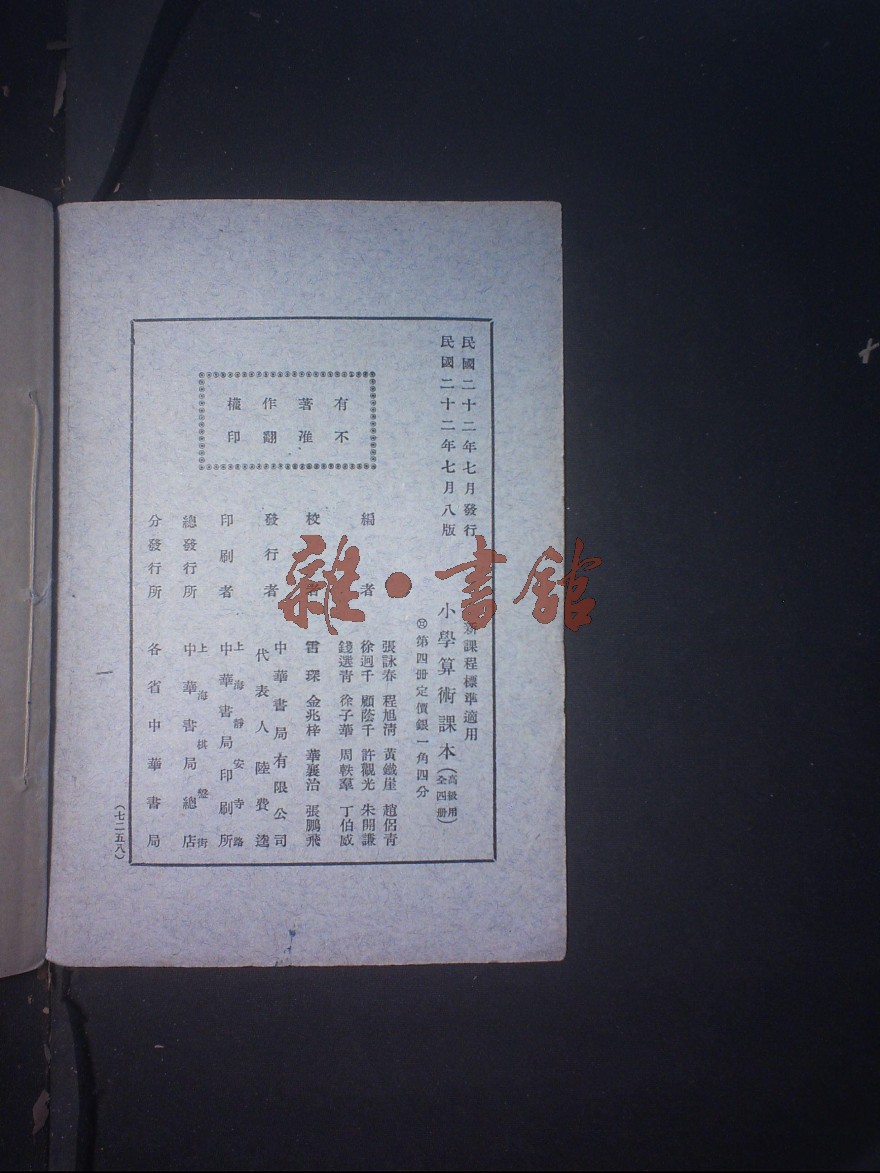 民國二十二年七月發行
民國二十二年七月八版
新課程標準適用
小學算術課本(高級用全四冊)
第四冊定價銀一角四分
有著作權
不准翻印
編者
張詠春 程旭清 黃鐵崖 趙侶青
徐迥千 顧蔭千 許觀光 朱開謙
錢選青 徐子華 周軼羣 丁伯威
校者
雷琛 金兆梓 華襄治 張鵬飛
發行者
中華書局有限公司
代表人 陸費逵
印刷者
上海靜安寺路
中華書局印刷所
總發行所
上海棋盤街
中華書局總店
分發行所
各省中華書局
一
(七二五八)
雜·書館